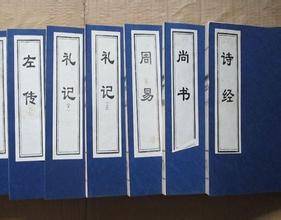 诗经
尚书
周易
礼记
礼记
左传